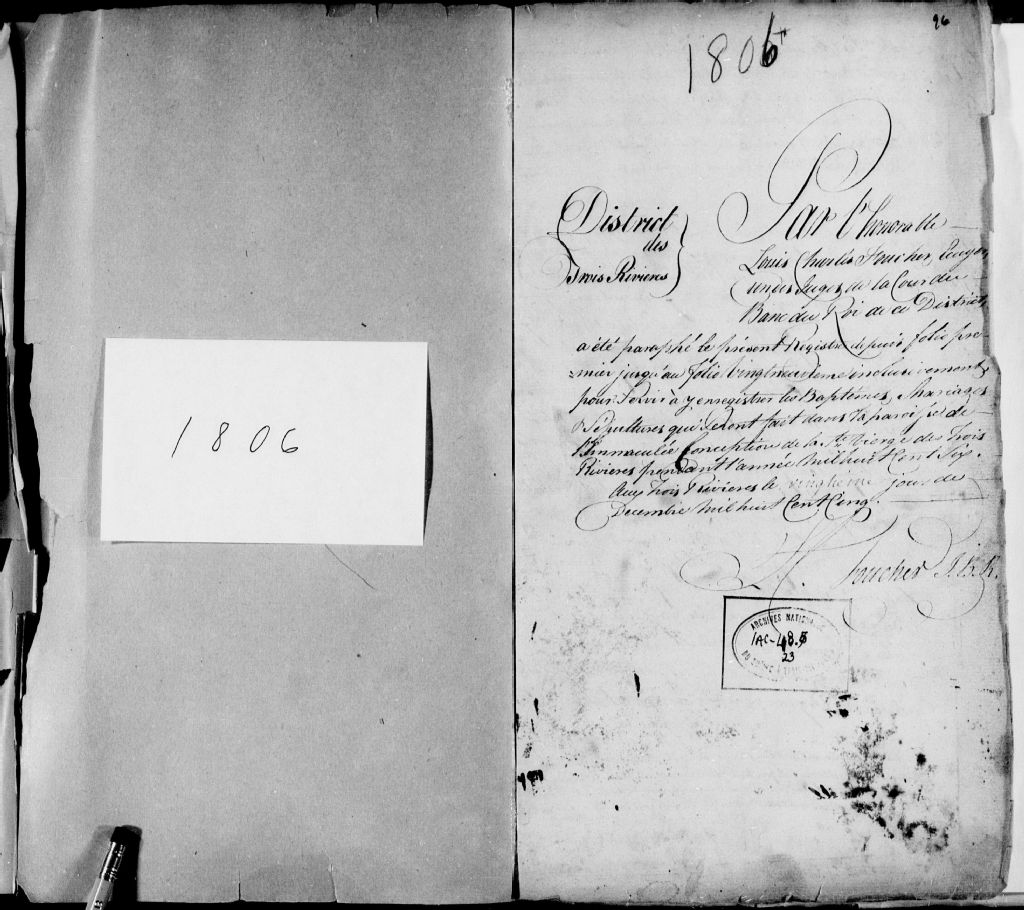 1806
96
1806
District
des
Trois Rivieres
Par l'honorable
Louis Charles Foucher, Ecuyer,
un des Juges de la Cour du
Banc du Roi de ce District,
a été paraphé le présent Registre depuis folio pre-
mier jusqu'au folio Vingt neuvieme inclusivement,
pour servir a y enregistrer les Baptêmes, Mariages
& Sépultures qui seront fait dans la paroisse de
l'Immaculée Conception de la Ste Vierge des Trois
Rivieres pendant l'année Mil huit Cent Six.
Aux Trois Rivieres le vingtieme jour de
Decembre Mil huit Cent Cinq.
L. C. Foucher J.B.R.
ARCHIVES NATIONALES
1AC-48.5
23